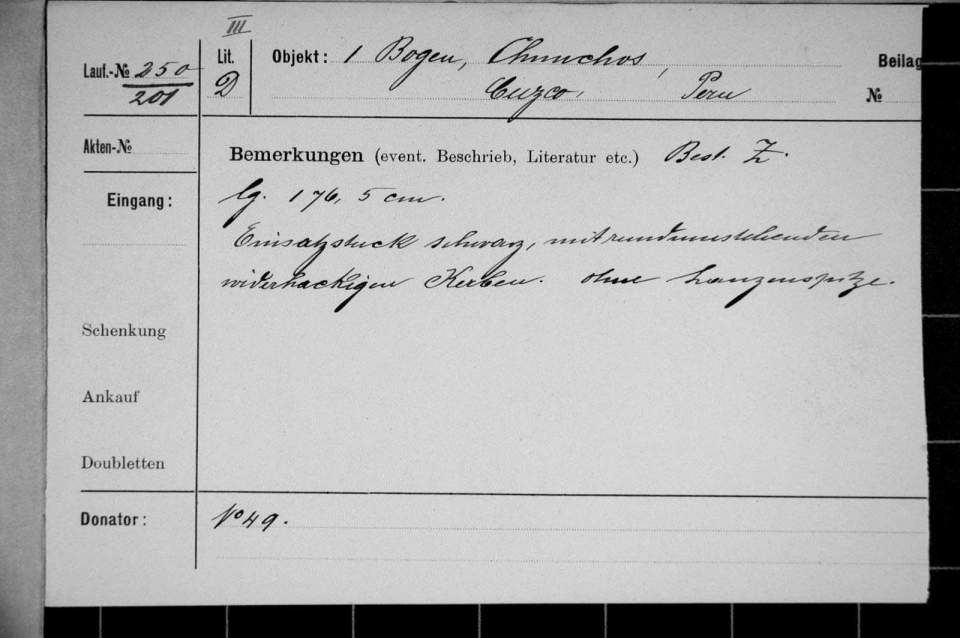 III
Lauf.-№ 250
201
Lit.
D
Objekt: 1 Bogen, Chunchos,
Cuzco, Peru
Beilag
№
Akten-№
Bemerkungen (event. Beschrieb, Literatur etc.) Best. Z.
Eingang:
lg. 176,5 cm.
Einsatzstück schwarz, mit rundumstehenden
widerhackigen Kerben. ohne Lanzenspitze.
Schenkung
Ankauf
Doubletten
Donator: No 49.